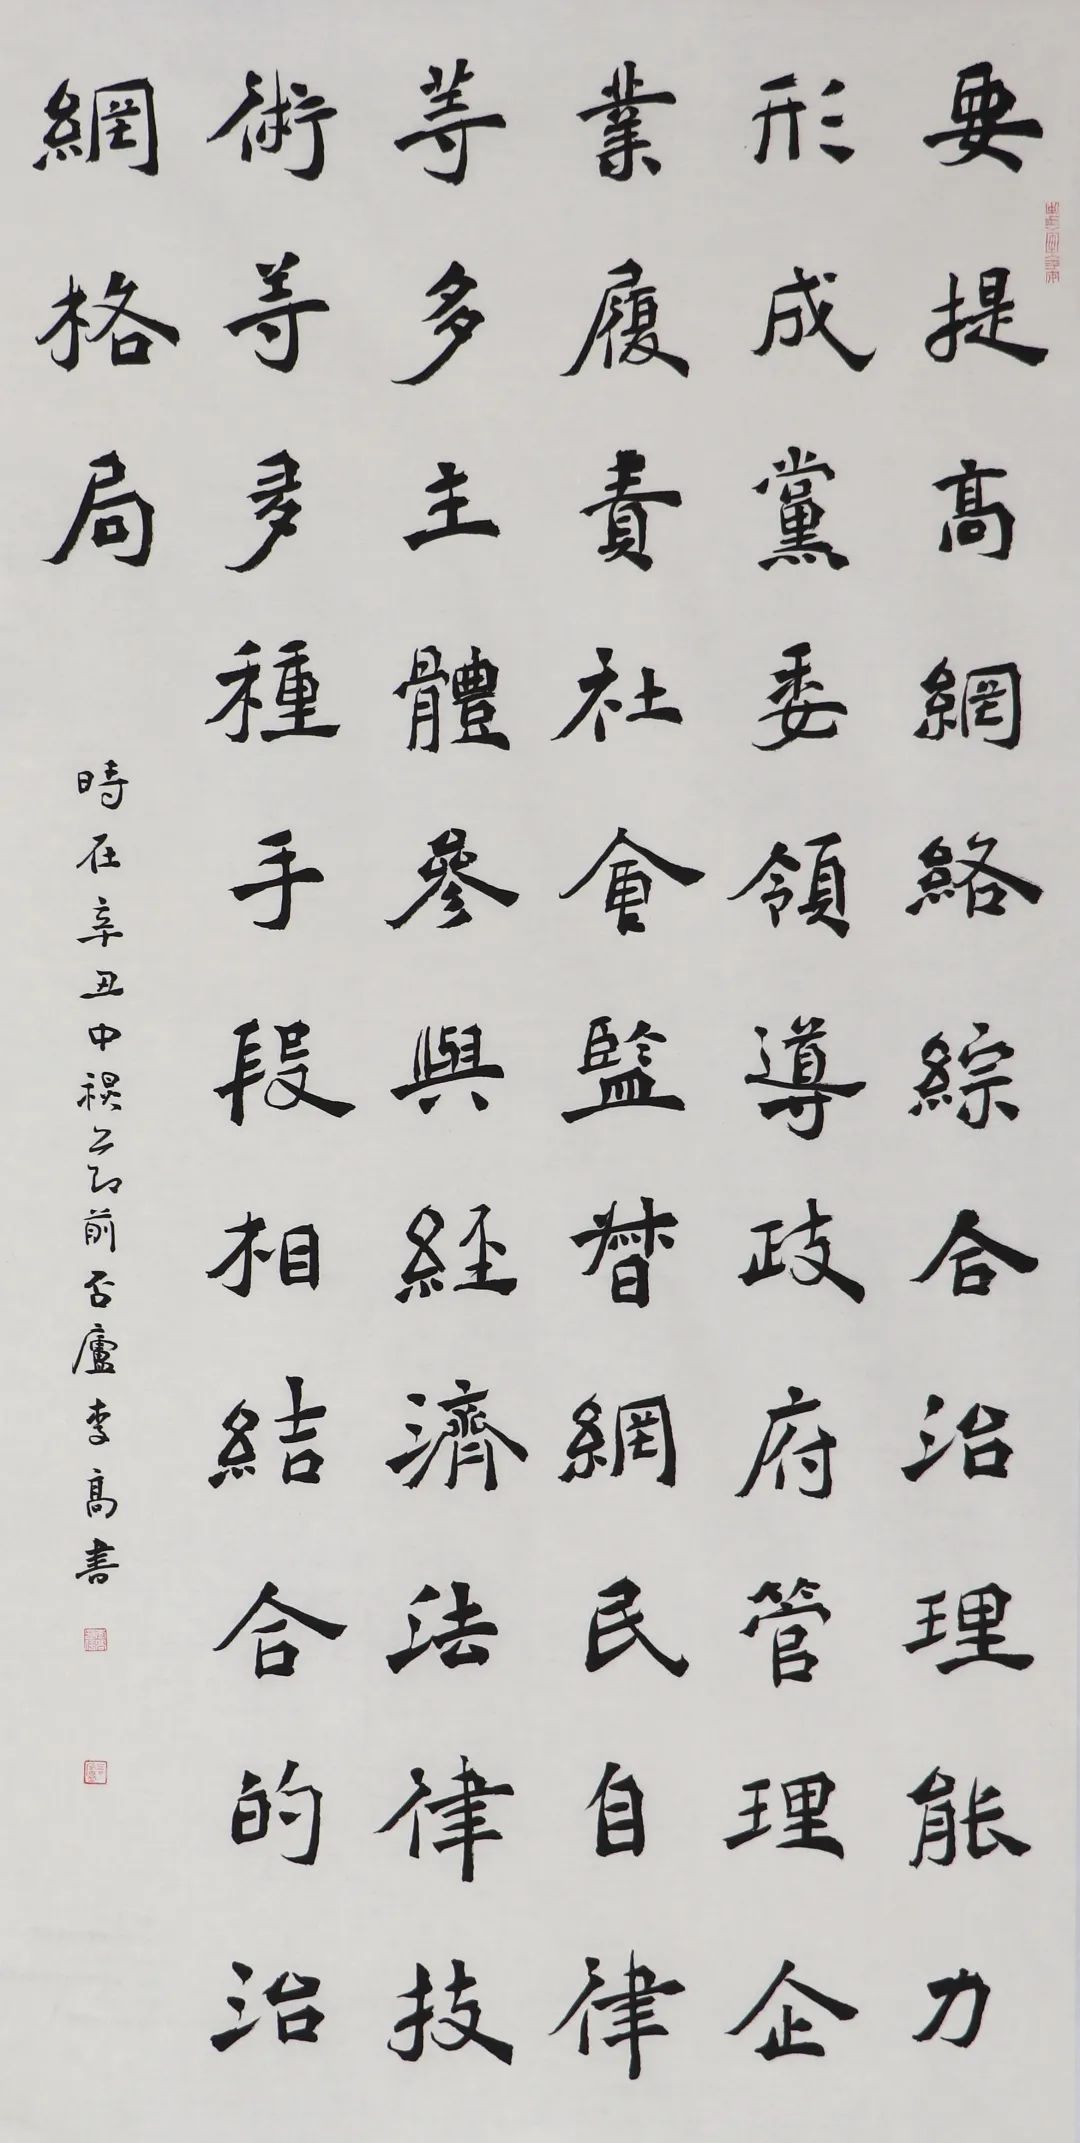 要提髙網絡綜合治理能力
形成黨委領導政府管理企
業履責社會監督網民自律
等多主體參與經濟法律技
術等多種手段相結合的治
網格局
時在辛丑中之節前廬李髙書